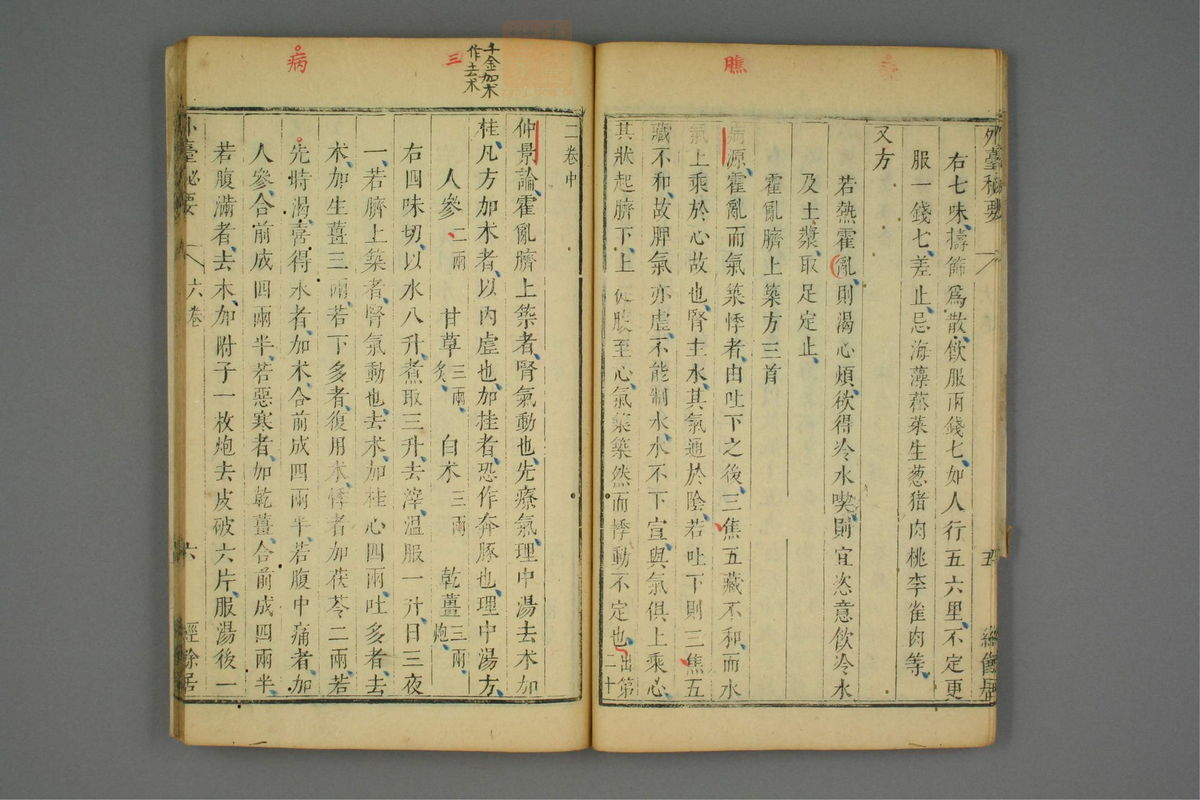 外臺秘要
五
經餘居
右七味擣篩爲散飲服兩錢匕如人行五六里不定更
服一錢匕差止忌海藻菘菜生葱猪肉桃李雀肉等
又方
若熱霍亂則渴心煩欲得冷水喫則宜恣意飲冷水
及土漿取足定止
霍亂臍上築方三首
病源霍亂而氣築悸者由吐下之後三焦五藏不和而水
氣上乘於心故也腎主水其氣通於陰若吐下則三焦五
藏不和故脾氣亦虛不能制水水不下宣與氣俱上乘心
其狀起臍下上從腹至心氣築築然而悸動不定也出第二十
二卷中
仲景論霍亂臍上築者腎氣動也先療氣理中湯去朮加
桂凡方加朮者以內虛也加桂者恐作奔豚也理中湯方
人參二兩 甘草三兩炙 白朮三兩 乾薑三兩炮
右四味切以水八升煮取三升去滓溫服一升日三夜
一若臍上築者腎氣動也去朮加桂心四兩吐多者去
朮加生薑三兩若下多者復用朮悸者加茯苓二兩若
先時渴喜得水者加朮合前成四兩半若腹中痛者加
人參合前成四兩半若惡寒者加乾薑合前成四兩半
若腹滿者去朮加附子一枚炮去皮破六片服湯後一
外臺秘要
六卷
六
經餘居
膲
千金加朮
作去朮
三
病